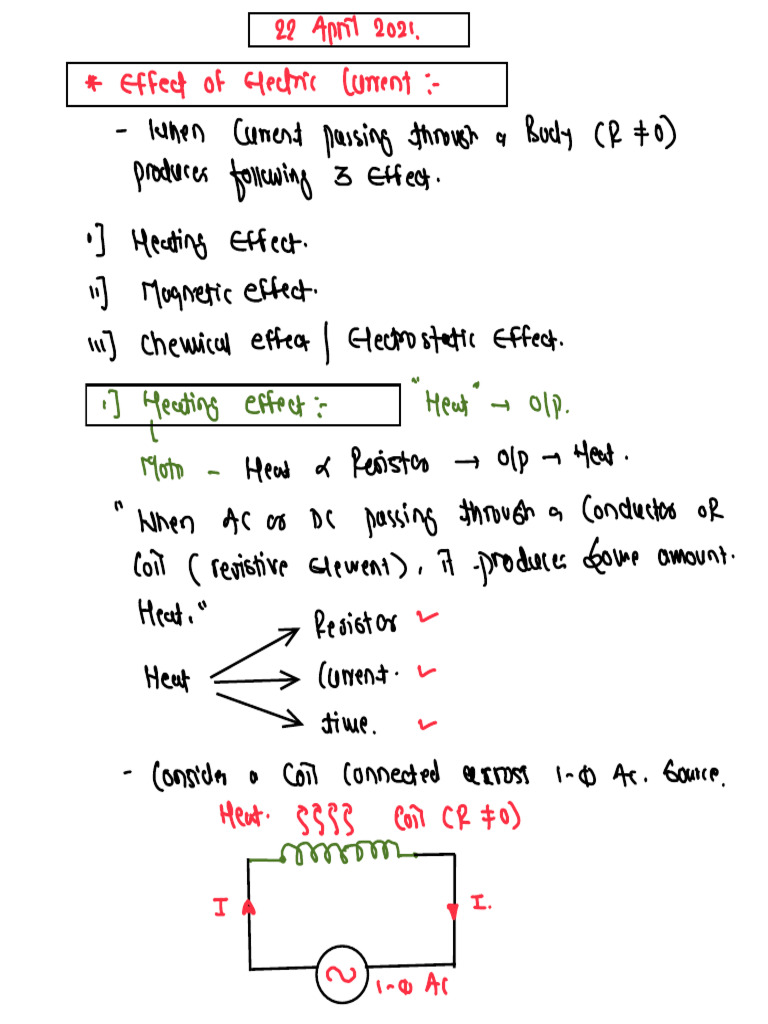 22 April 2021.
* Effect of Electric Current :-
- When Current passing through a Body (R ≠ 0)
produces following 3 Effect.
i] Heating Effect.
ii] Magnetic effect.
iii] Chemical effect | Electrostatic Effect.
i] Heating effect :- "Heat" → O/P.
Moto - Heat ∝ Resistor → O/P → Heat.
"When AC or DC passing through a Conductor OR
Coil (resistive Element), it produces some amount.
Heat."
Resistor ✓
Heat Current. ✓
time. ✓
- Consider a Coil Connected across 1-Φ Ac. Source.
Heat. Coil (R ≠ 0)
I I.
1-Φ AC